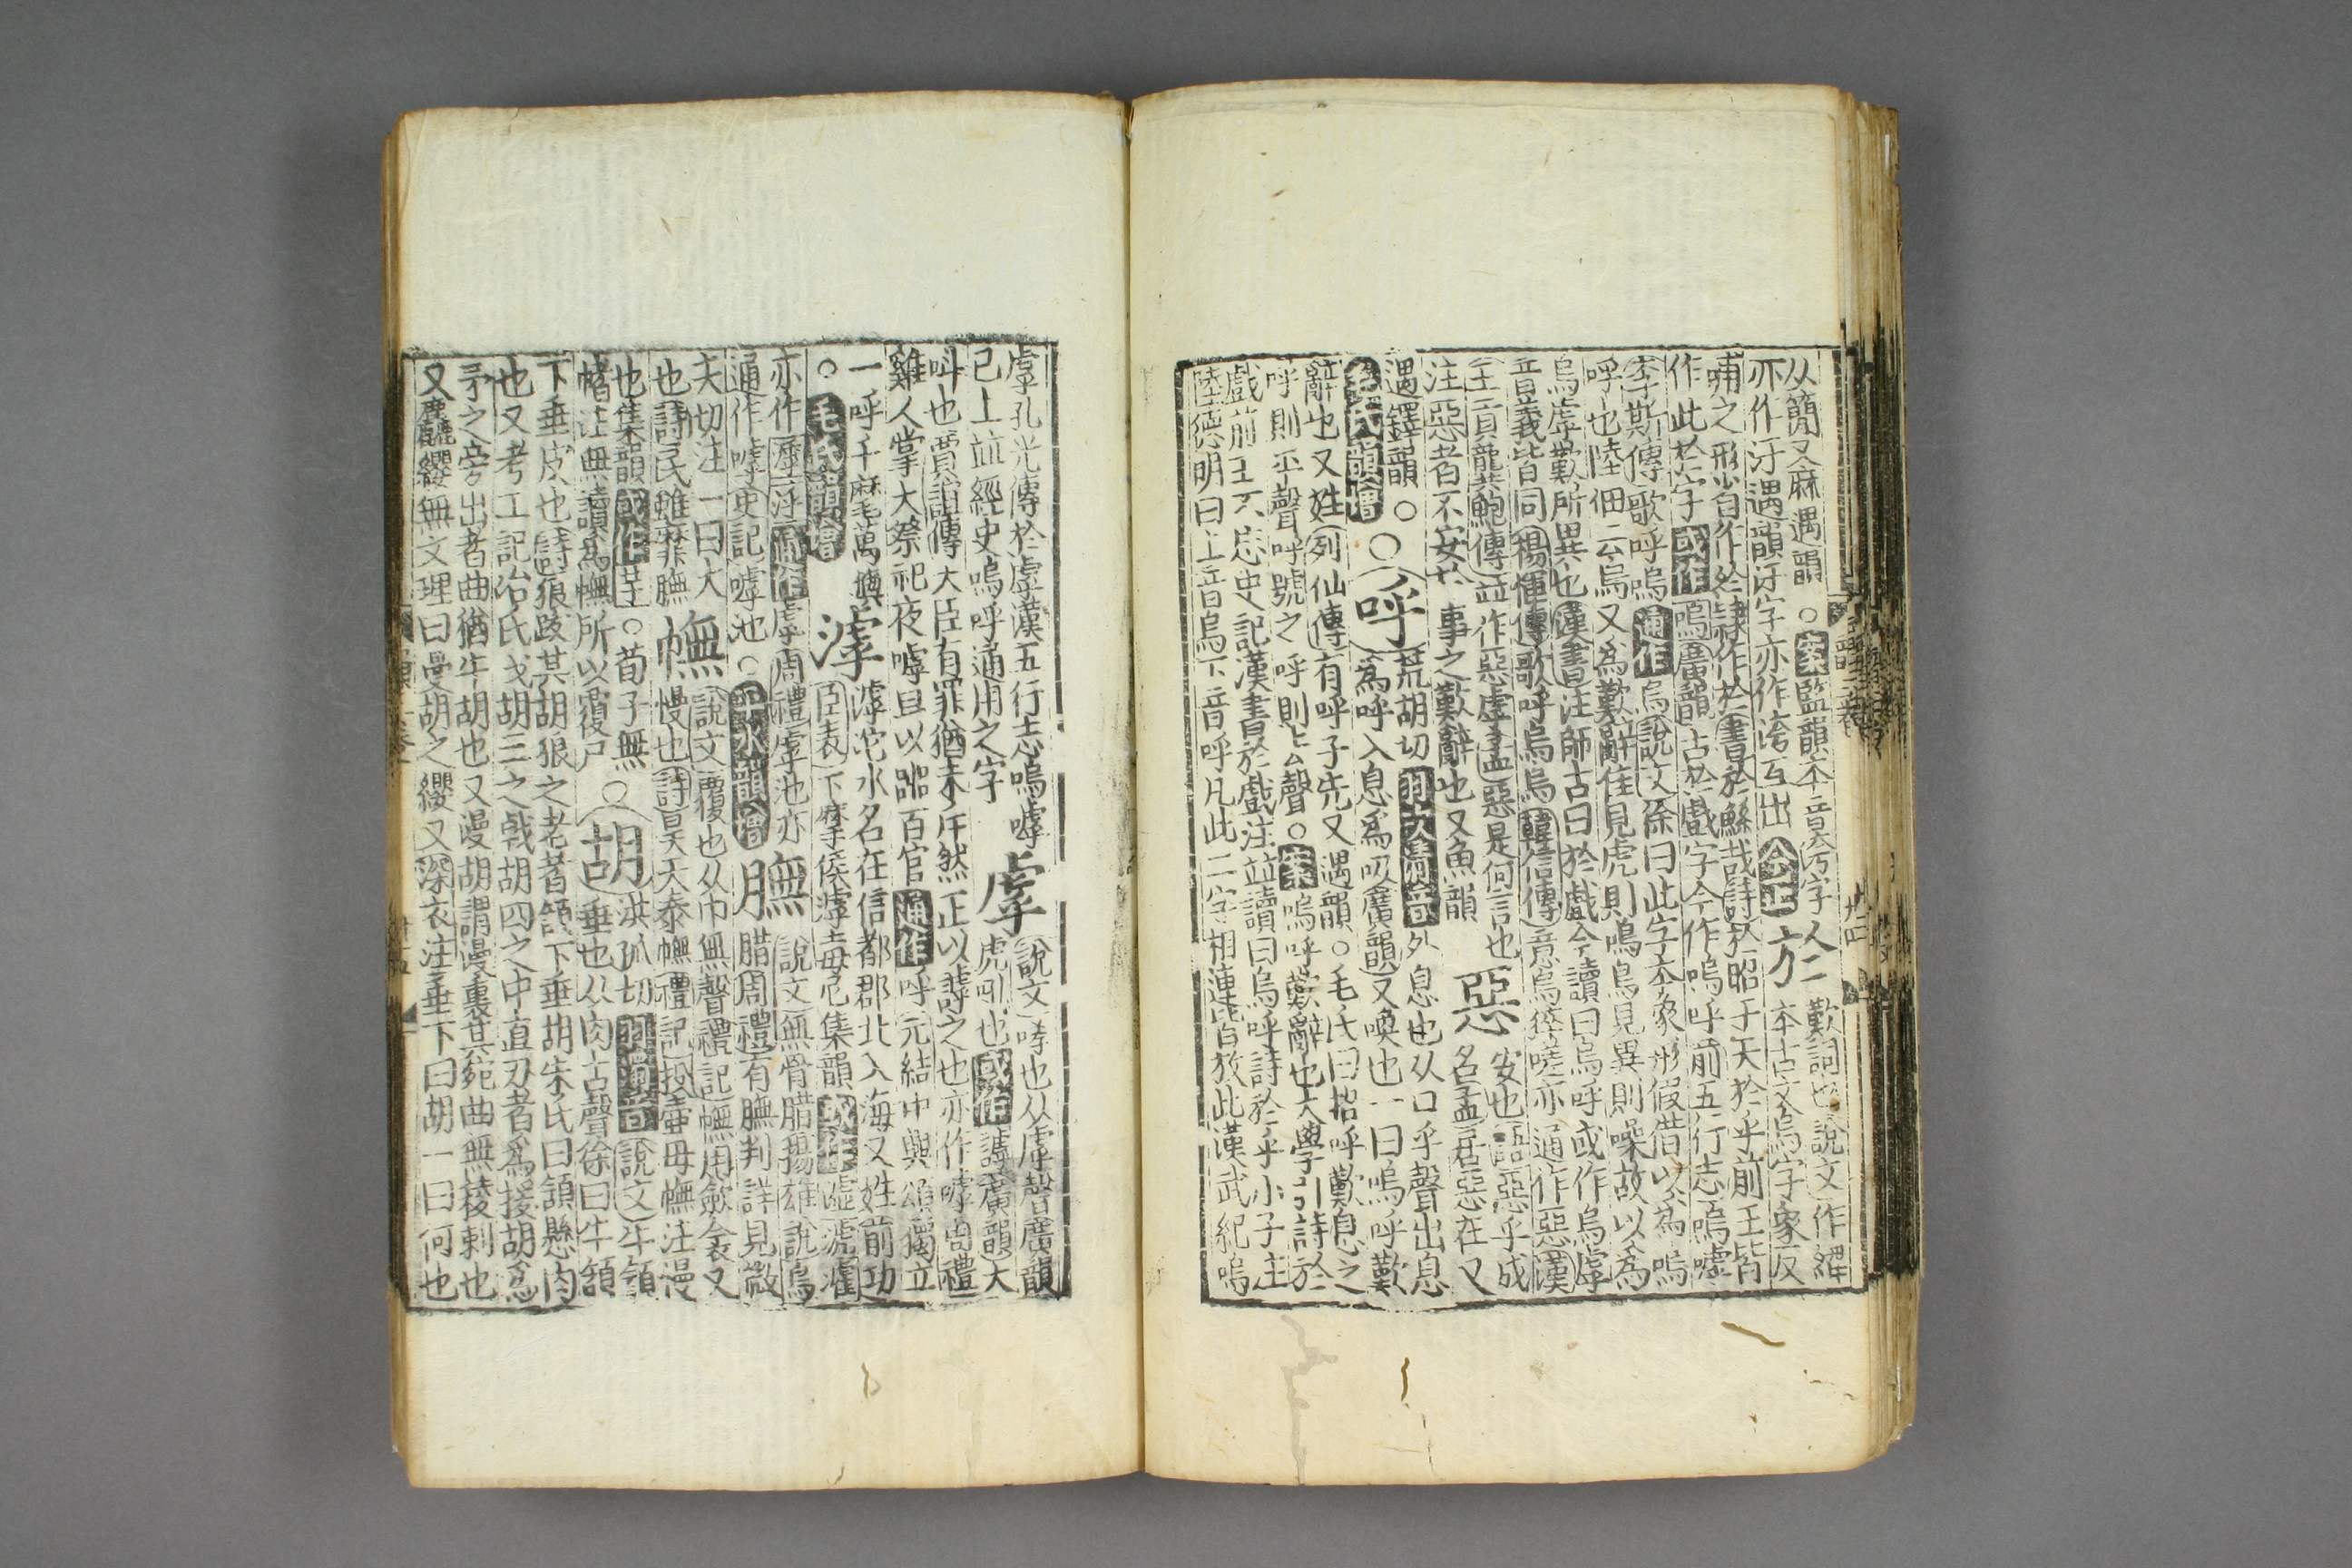 从簡又麻遇韻○案監韻本音奚污字
亦作汙遇韻汙字亦作洿互出今正
於
歎詞也說文作經
本古文烏字象反
哺之形省作於隷作於書於鰷哉詩於昭于天於乎前王皆
作此於字或作嗚廣韻古於戲字今作嗚呼前五行志嗚嘑
李斯傳歌呼嗚通作烏說文徐曰此字本象形假借以為嗚
呼也陸佃云烏又為歎辭隹見虎則鳴烏見異則噪故以為
烏虖歎所異也漢書注師古曰於戲今讀曰烏呼或作烏虖
音義皆同楊惲傳歌呼烏烏韓信傳意烏猝嗟亦通作惡漢
王貢龔鮑傳並作惡虖孟惡是何言也
注惡者不安其事之歎辭也又魚韻
惡
安也語惡乎成
名孟君惡在又
遇鐸韻○
毛氏韻增
○呼
荒胡切羽次清音外息也从口乎聲出息
為呼入息為吸廣韻又喚也一曰嗚呼歎
辭也又姓列仙傳有呼子先又遇韻○毛氏曰招呼歎息之
呼則平聲呼號之呼則去聲○案嗚呼歎辭也大學引詩於
戲前王不忘史記漢書於戲注並讀曰烏呼詩於乎小子注
陸德明曰上音烏下音呼凡此二字相連皆放此漢武紀嗚
虖孔光傳於虖漢五行志嗚嘑
已上並經史嗚呼通用之字
虖
說文哮也从虍乎聲廣韻
虎吼也或作謼廣韻大
叫也賈誼傳大臣有罪猶未斥然正以謼之也亦作嘑周禮
雞人掌大祭祀夜嘑旦以嘂百官通作呼元結中興頌獨立
一呼千麾毛萬旟
○毛氏韻增
滹
滹沱水名在信都郡北入海又姓前功
臣表下摩侯滹毒尼集韻或作
亦作通作虖周禮虖池亦
通作嘑史記嘑池○平水韻增
膴
說文無骨腊揚雄說鳥
腊周禮有膴判詳見微
夫切注一曰大
也詩民雖靡膴
幠
說文覆也从巾無聲禮記幠用斂衾又
慢也詩昊天泰幠禮記投壺毋幠注漫
也集韻或作○荀子無
幠注無讀為幠所以覆尸
○胡
洪孤切羽濁音說文牛頷
垂也从肉古聲徐曰牛頷
下垂皮也詩狼跋其胡狼之老者頷下垂胡朱氏曰頷懸肉
也又考工記冶氏戈胡三之戟胡四之中直刃者為援胡為
矛之旁出者曲猶牛胡也又漫胡謂漫裏其菀曲無稜剌也
又麤纓無文理曰曼胡之纓又深衣注垂下曰胡一曰何也